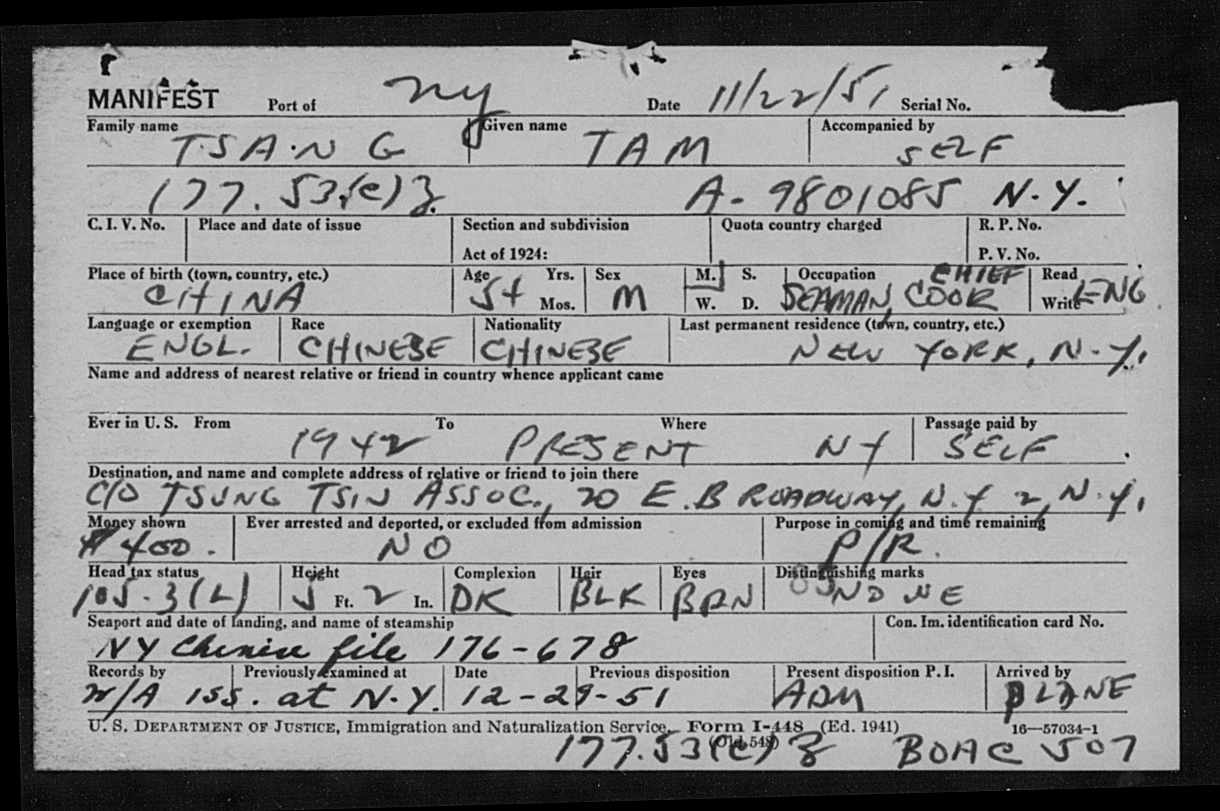 MANIFEST Port of NY Date 11/22/51 Serial No.
Family name TSANG Given name TAM Accompanied by SELF
177.53(c)3. A-9801085 N.Y.
C. I. V. No. Place and date of issue Section and subdivision Quota country charged R. P. No.
Act of 1924: P. V. No.
Place of birth (town, country, etc.) CHINA Age 54 Yrs. Mos. Sex M M. S. W. D. Occupation CHIEF SEAMAN, COOK Read Write ENG
Language or exemption ENGL. Race CHINESE Nationality CHINESE Last permanent residence (town, country, etc.) NEW YORK, N.Y.
Name and address of nearest relative or friend in country whence applicant came
Ever in U. S. From 1942 To PRESENT Where NY Passage paid by SELF
Destination, and name and complete address of relative or friend to join there
C/O TSUNG TSIN ASSOC., 20 E. BROADWAY, N.Y. 2, N.Y.
Money shown $400. Ever arrested and deported, or excluded from admission NO Purpose in coming and time remaining P/R.
Head tax status 105.3(L) Height 5 Ft. 2 In. Complexion DK Hair BLK Eyes BRN Distinguishing marks NONE
Seaport and date of landing, and name of steamship Con. Im. identification card No.
NY Chinese file 176-678
Records by Previously examined at Date Previous disposition Present disposition P. I. Arrived by
W/A iss. at N.Y. 12-29-51 ADM PLANE
U. S. DEPARTMENT OF JUSTICE, Immigration and Naturalization Service. Form I-448 (Ed. 1941) 16—57034-1
(Old 548)
177.53(c)3 BOAC 507